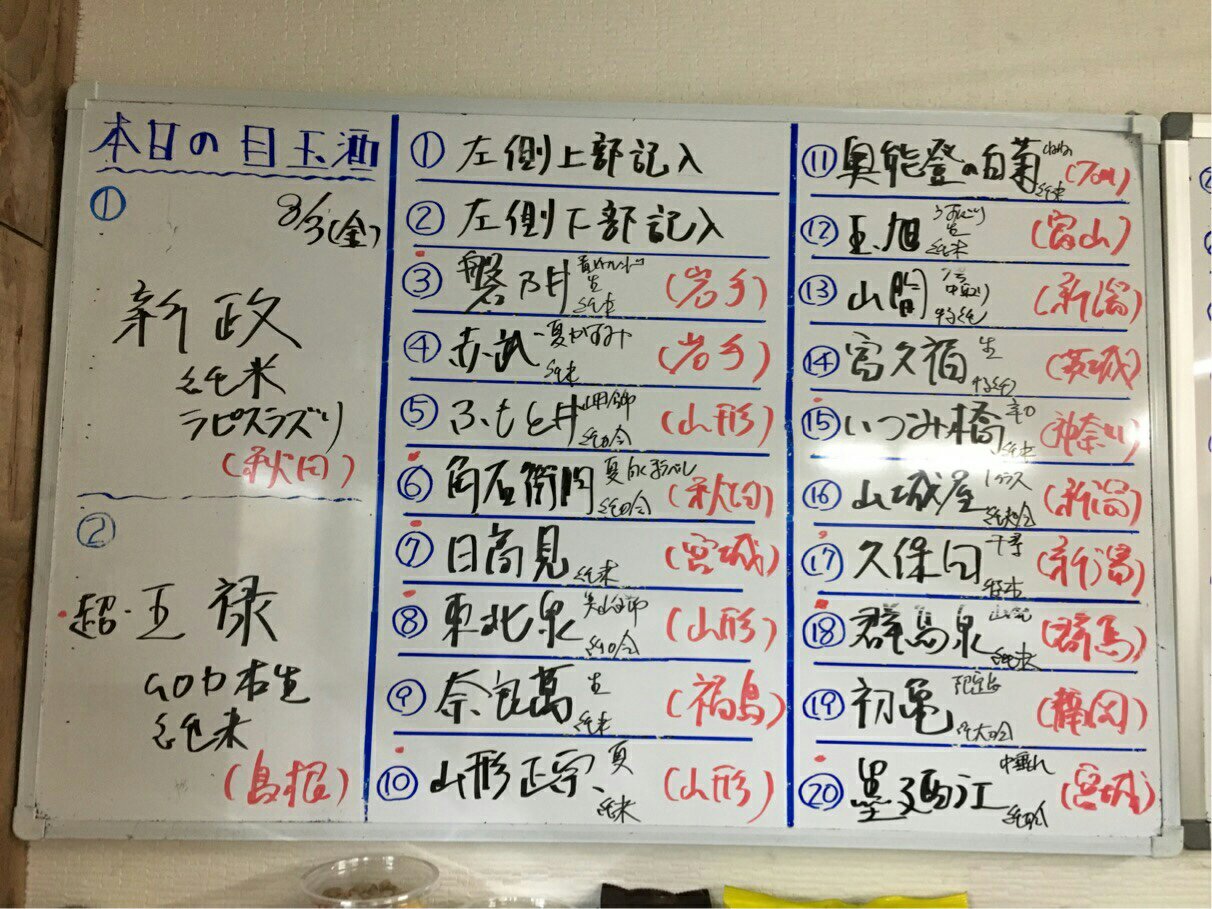 本日の目玉酒
①
8/3(金)
新政
純米
ラピスラズリ
(秋田)
②
超・王禄
60カ本生
純米
(島根)
① 左側上部記入
② 左側下部記入
③ 磐乃井 生 純米 (岩手)
④ 赤武 夏がすみ 純米 (岩手)
⑤ ふもと井 純吟 (山形)
⑥ 角右衛門 夏 純吟 (秋田)
⑦ 日高見 純米 (宮城)
⑧ 東北泉 純吟 (山形)
⑨ 奈良萬 生 純米 (福島)
⑩ 山形正宗 夏 純米 (山形)
⑪ 奥能登の白菊 純米 (石川)
⑫ 玉旭 うすにごり 生 純米 (富山)
⑬ 山間 中採り 特純 (新潟)
⑭ 富久福 生 特純 (茨城)
⑮ いづみ橋 辛口 純米 (神奈川)
⑯ 山城屋 純大吟 (新潟)
⑰ 久保田 千寿 特本 (新潟)
⑱ 群馬泉 純米 (群馬)
⑲ 初亀 純大吟 (静岡)
⑳ 墨廼江 中垂れ 純吟 (宮城)